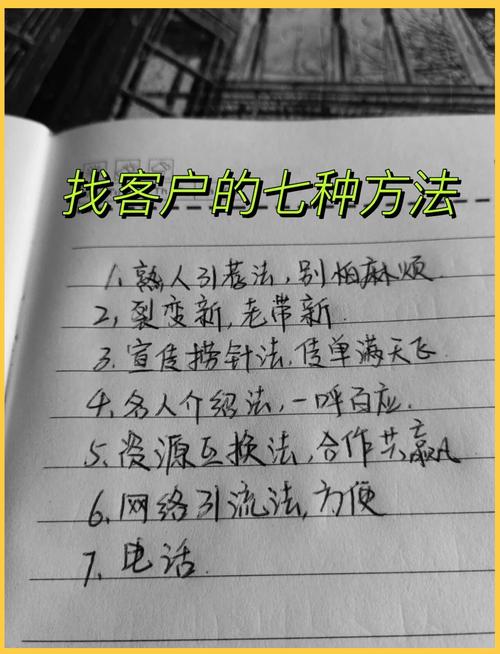 找客户的七种方法
1、熟人引荐法，别怕麻烦.
2，裂变新，老带新.
3.宣传捞针法，传单满天飞.
4.名人介绍法，一呼百应.
5.资源互换法，合作共赢
6.网络引流法，方便
7、电话.